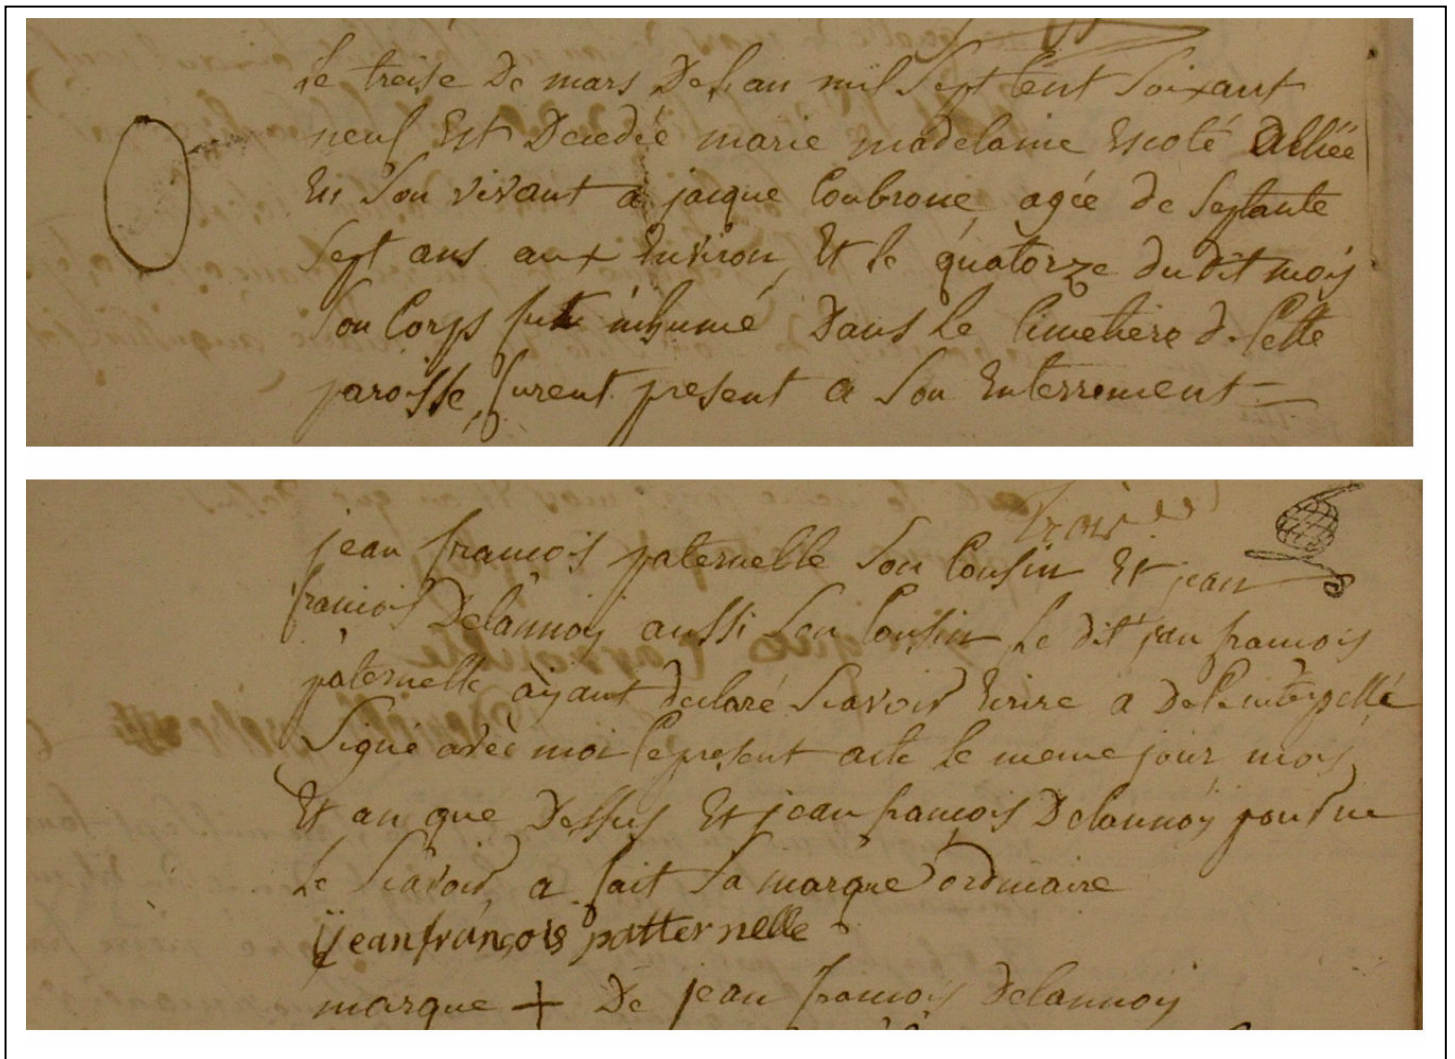 Le treise De mars Delan mil Sept Cent Soixant
neuf Est Decedée marie madelaine Escoté alliée
En Son vivant a jacque Coubronne, agée de Septante
Sept ans aux Environ, Et le quatorze du dit mois
Son Corps fut inhumé Dans le Cimetiere de Cette
paroisse, furent present a Son Enterrement
jean francois paternelle Son Cousin Et jean
francois Delannoij aussi Son Cousin Le dit jean francois
paternelle aijant declaré Scavoir Ecrire a De Ce interpellé
Signé avec moi le present acte le meme jour mois
Et an que Dessus Et jean françois Delannoÿ pour ne
Le Scavoir, a fait Sa marque ordinaire
ÿjeanfrançois patternelle
marque + De jean francois Delannoij